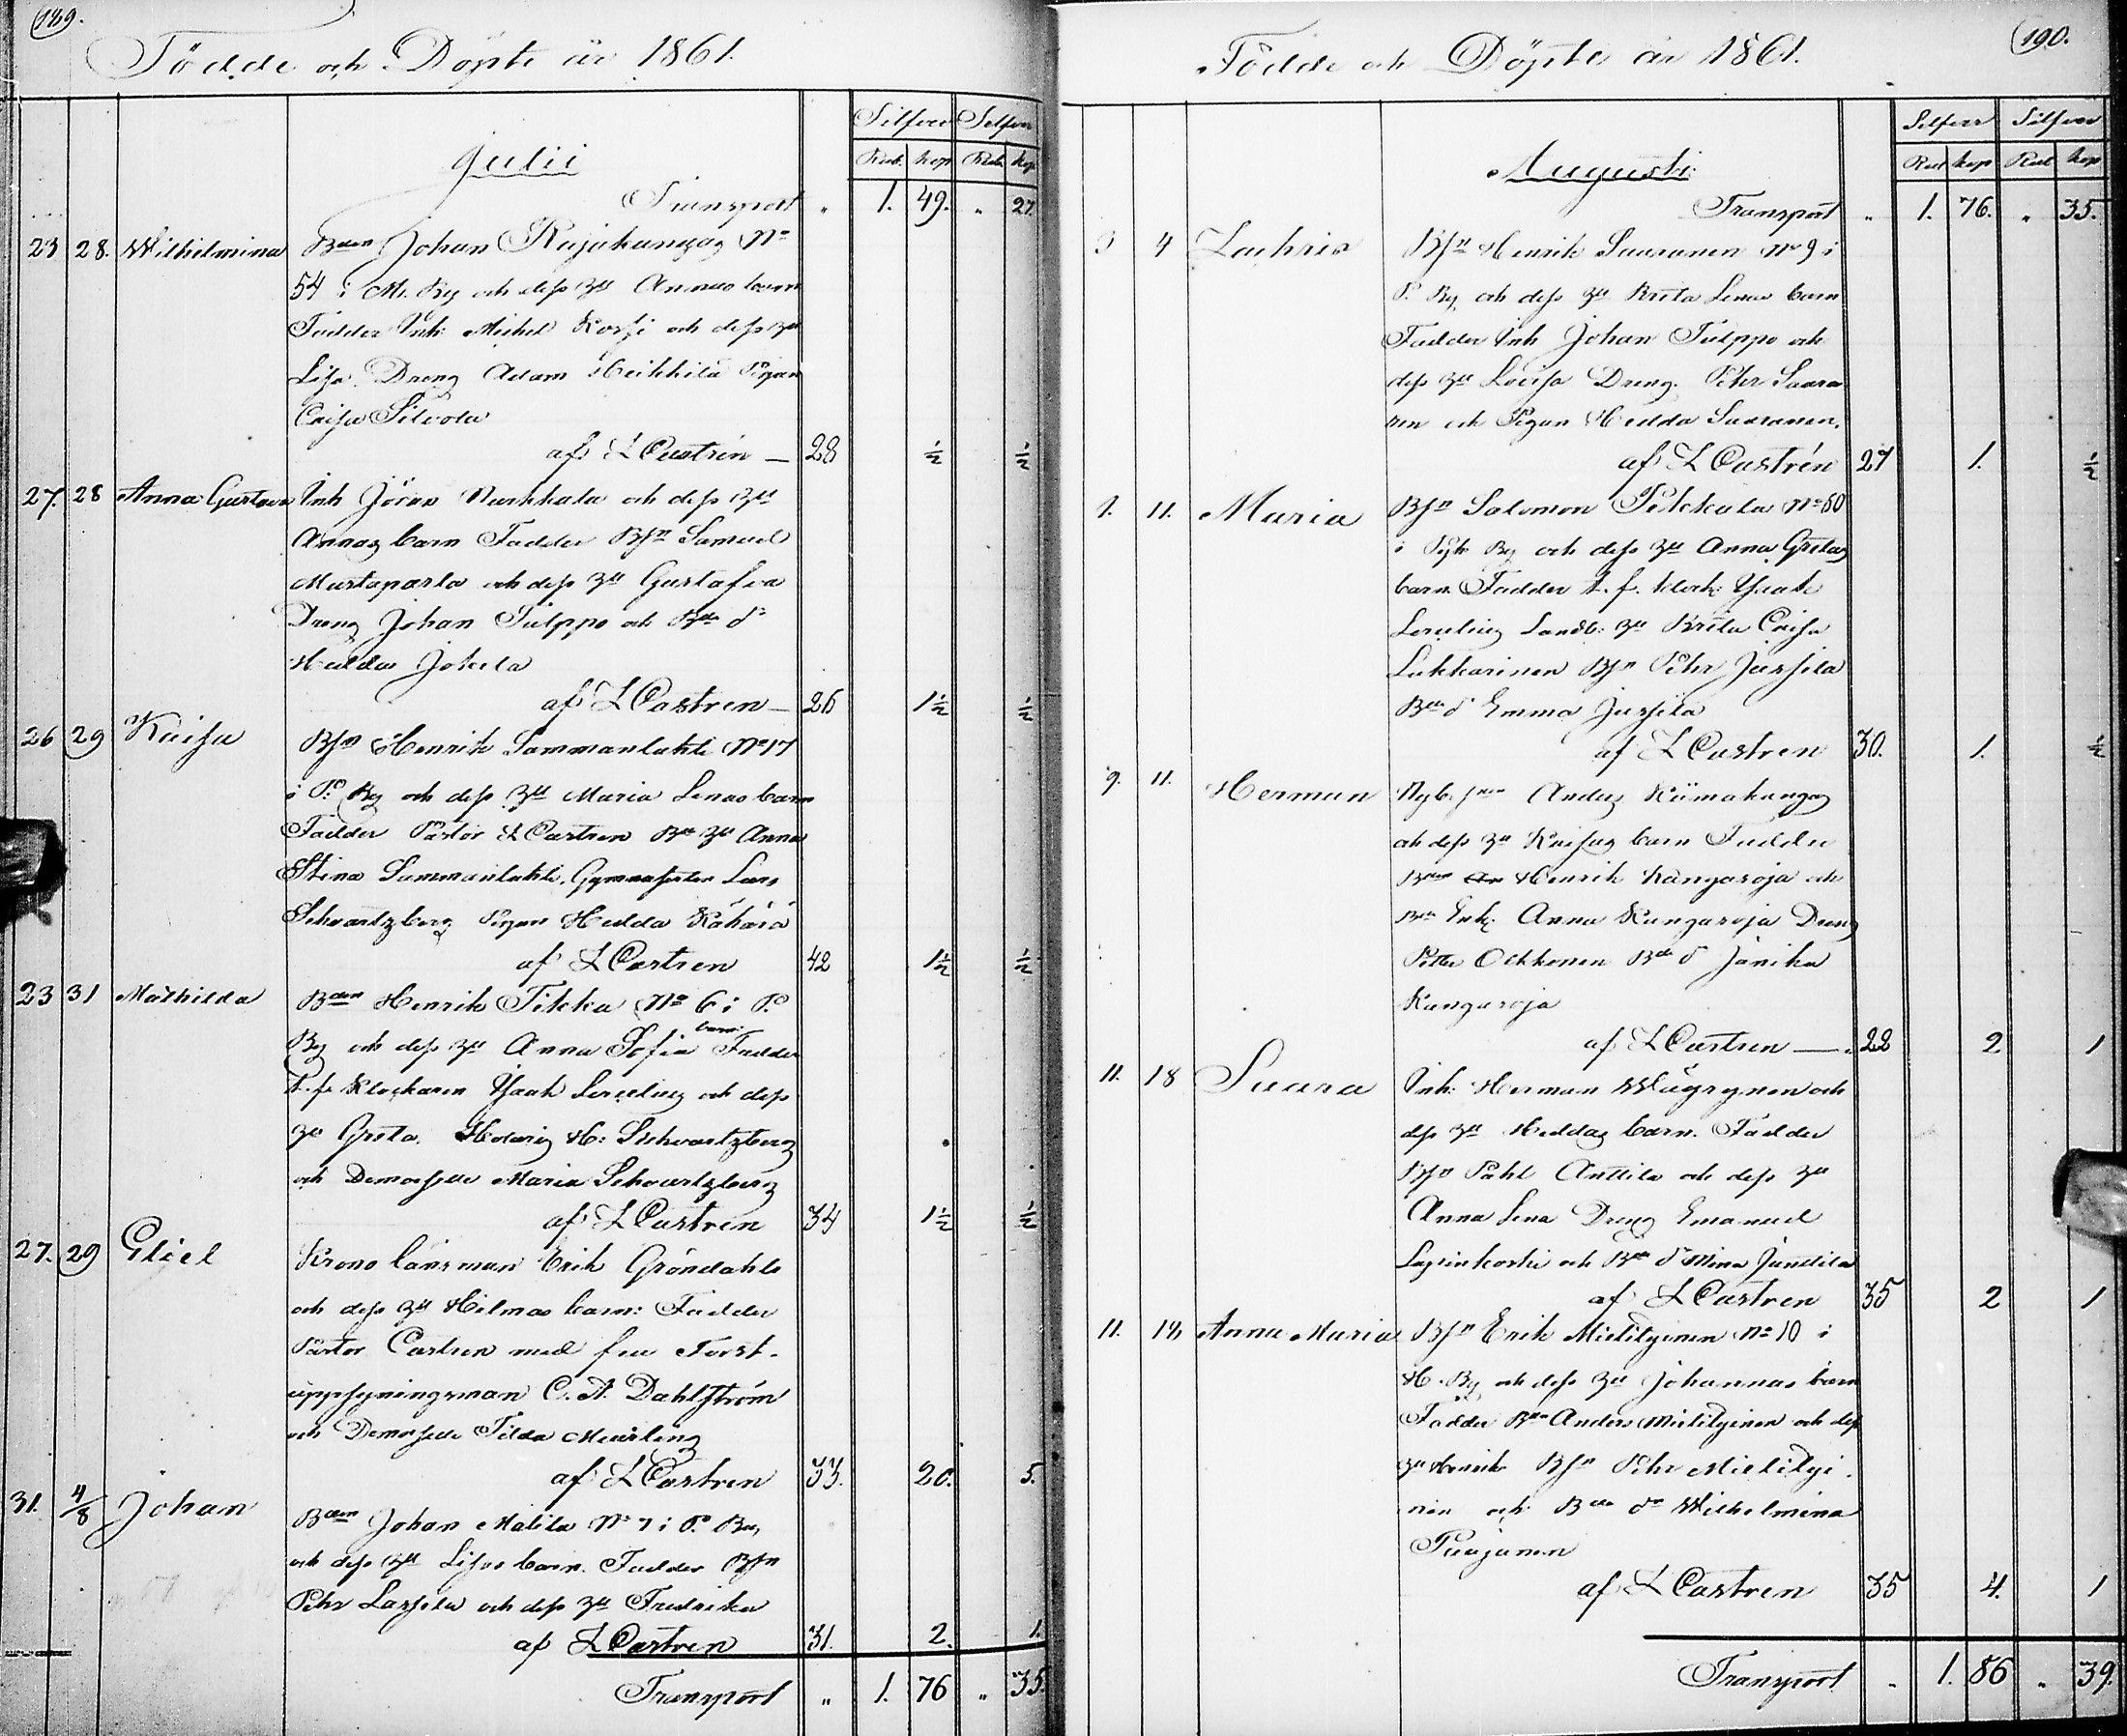 189.
Födde och Döpte år 1861.
Silfver Silfver
Rub. kop Rub. kop
Julii
Transport " 1. 49. " 27.
23 28. Wilhelmina Bden Johan No
54 i M. By och dess Hu Annas barn
Fadder Inh: Michel Kossi och dess Hu
Lisa, Dreng Adam Heikkilä Pigan
Caisa Siivola
af L Castrén — 28 ½ ½
27. 28 Anna Gustava Inh Jöran Nurkkala och dess Hu
Annas barn Fadder Bsn Samuel
Mustaparta och dess Hu Gustafva
Dreng Johan Tulppo och Bde dr
Hedda Jokela
af L Castren — 26 1½ ½
26 29 Kaisa Bsn Henrik Sammanlahti No 17
i P. By och dess Hu Maria Lenas barn
Fadder Pastor L Castren Bde Hu Anna
Stina Sammanlahti, Gymnasisten Lars
Schvartzberg Pigan Hedda Kähärä
af L Castren 42 1½ ½
23 31 Mathilda Bden Henrik Tikka No 6 i P.
By och dess Hu Anna Sofia barn: Fadder
t. f. Klockaren Isaak Serelius och dess
Hu Greta. Hedvig H: Schvartzberg
och Demoiselle Maria Schvartzberg
af L Castren 34 1½ ½
27. 29 Eliel Krono länsman Erik Gröndahls
och dess Hu Hilmas barn: Fadder
Pastor Castren med fru Forst-
uppsyningsman C. A. Dahlström
och Demoiselle Tilda Meurling
af L Castren 33. 20. 5.
31. 4/8 Johan Bden Johan Matila No 7 i P. By,
och dess Hu Lisas barn. Fadder Bsn
Pehr Lassila och dess Hu Fredrika
af L Castren 31. 2. 1.
Transport " 1. 76 " 35.
190.
Födde och Döpte år 1861.
Silfver Silfver
Rub kop Rub kop
Augusti
Transport " 1. 76. " 35.
3 4 Zachris Bsn Henrik Saaranen No 9 i
P. By, och dess Hu Brita Lenas barn
Fadder Inh Johan Tulppo och
dess Hu Lovisa Dreng. Pehr Saara
nen och Pigan Hedda Saaranen.
af L Castrén 27 1. ½
1. 11. Maria Bsn Salomon Pikkala No 60
i By och dess Hu Anna Gretas
barn. Fadder t. f. klock: Isaak
Serelius Landb: Hu Brita Caisa
Lukkarinen Bsn Pehr Jussila
Bde dr Emma Jussila
af L Castren 30. 1. ½
9. 11. Herman Nyb. Anders Kiimakangas
och dess Hu Kaisas barn Fadder
Bden Henrik Kangasoja och
Bde Enk: Anna Kangasoja Dreng
Petter Ockkonen Bde dr Janika
Kangasoja
af L Castren — 22 2 1
11. 18 Saara Inh: Herman Wäyrynen och
dess Hu Heddas barn. Fadder
Bsn Pahl Anttila och dess Hu
Anna Lena Dreng Emanuel
Lapinkoski och Bde dr Mina Junttila
af L Castren 35 2 1
11. 18, Anna Maria Bsn Erik Mietityinen No 10 i
H. By och dess Hu Johannas barn
Fadder Bden Anders Mietityinen och dess
Hu Henrik Bsn Pehr Mietityi
nen och Bde dr Wilhelmina
af L Castren 35 4. 1
Transport " 1. 86 " 39.